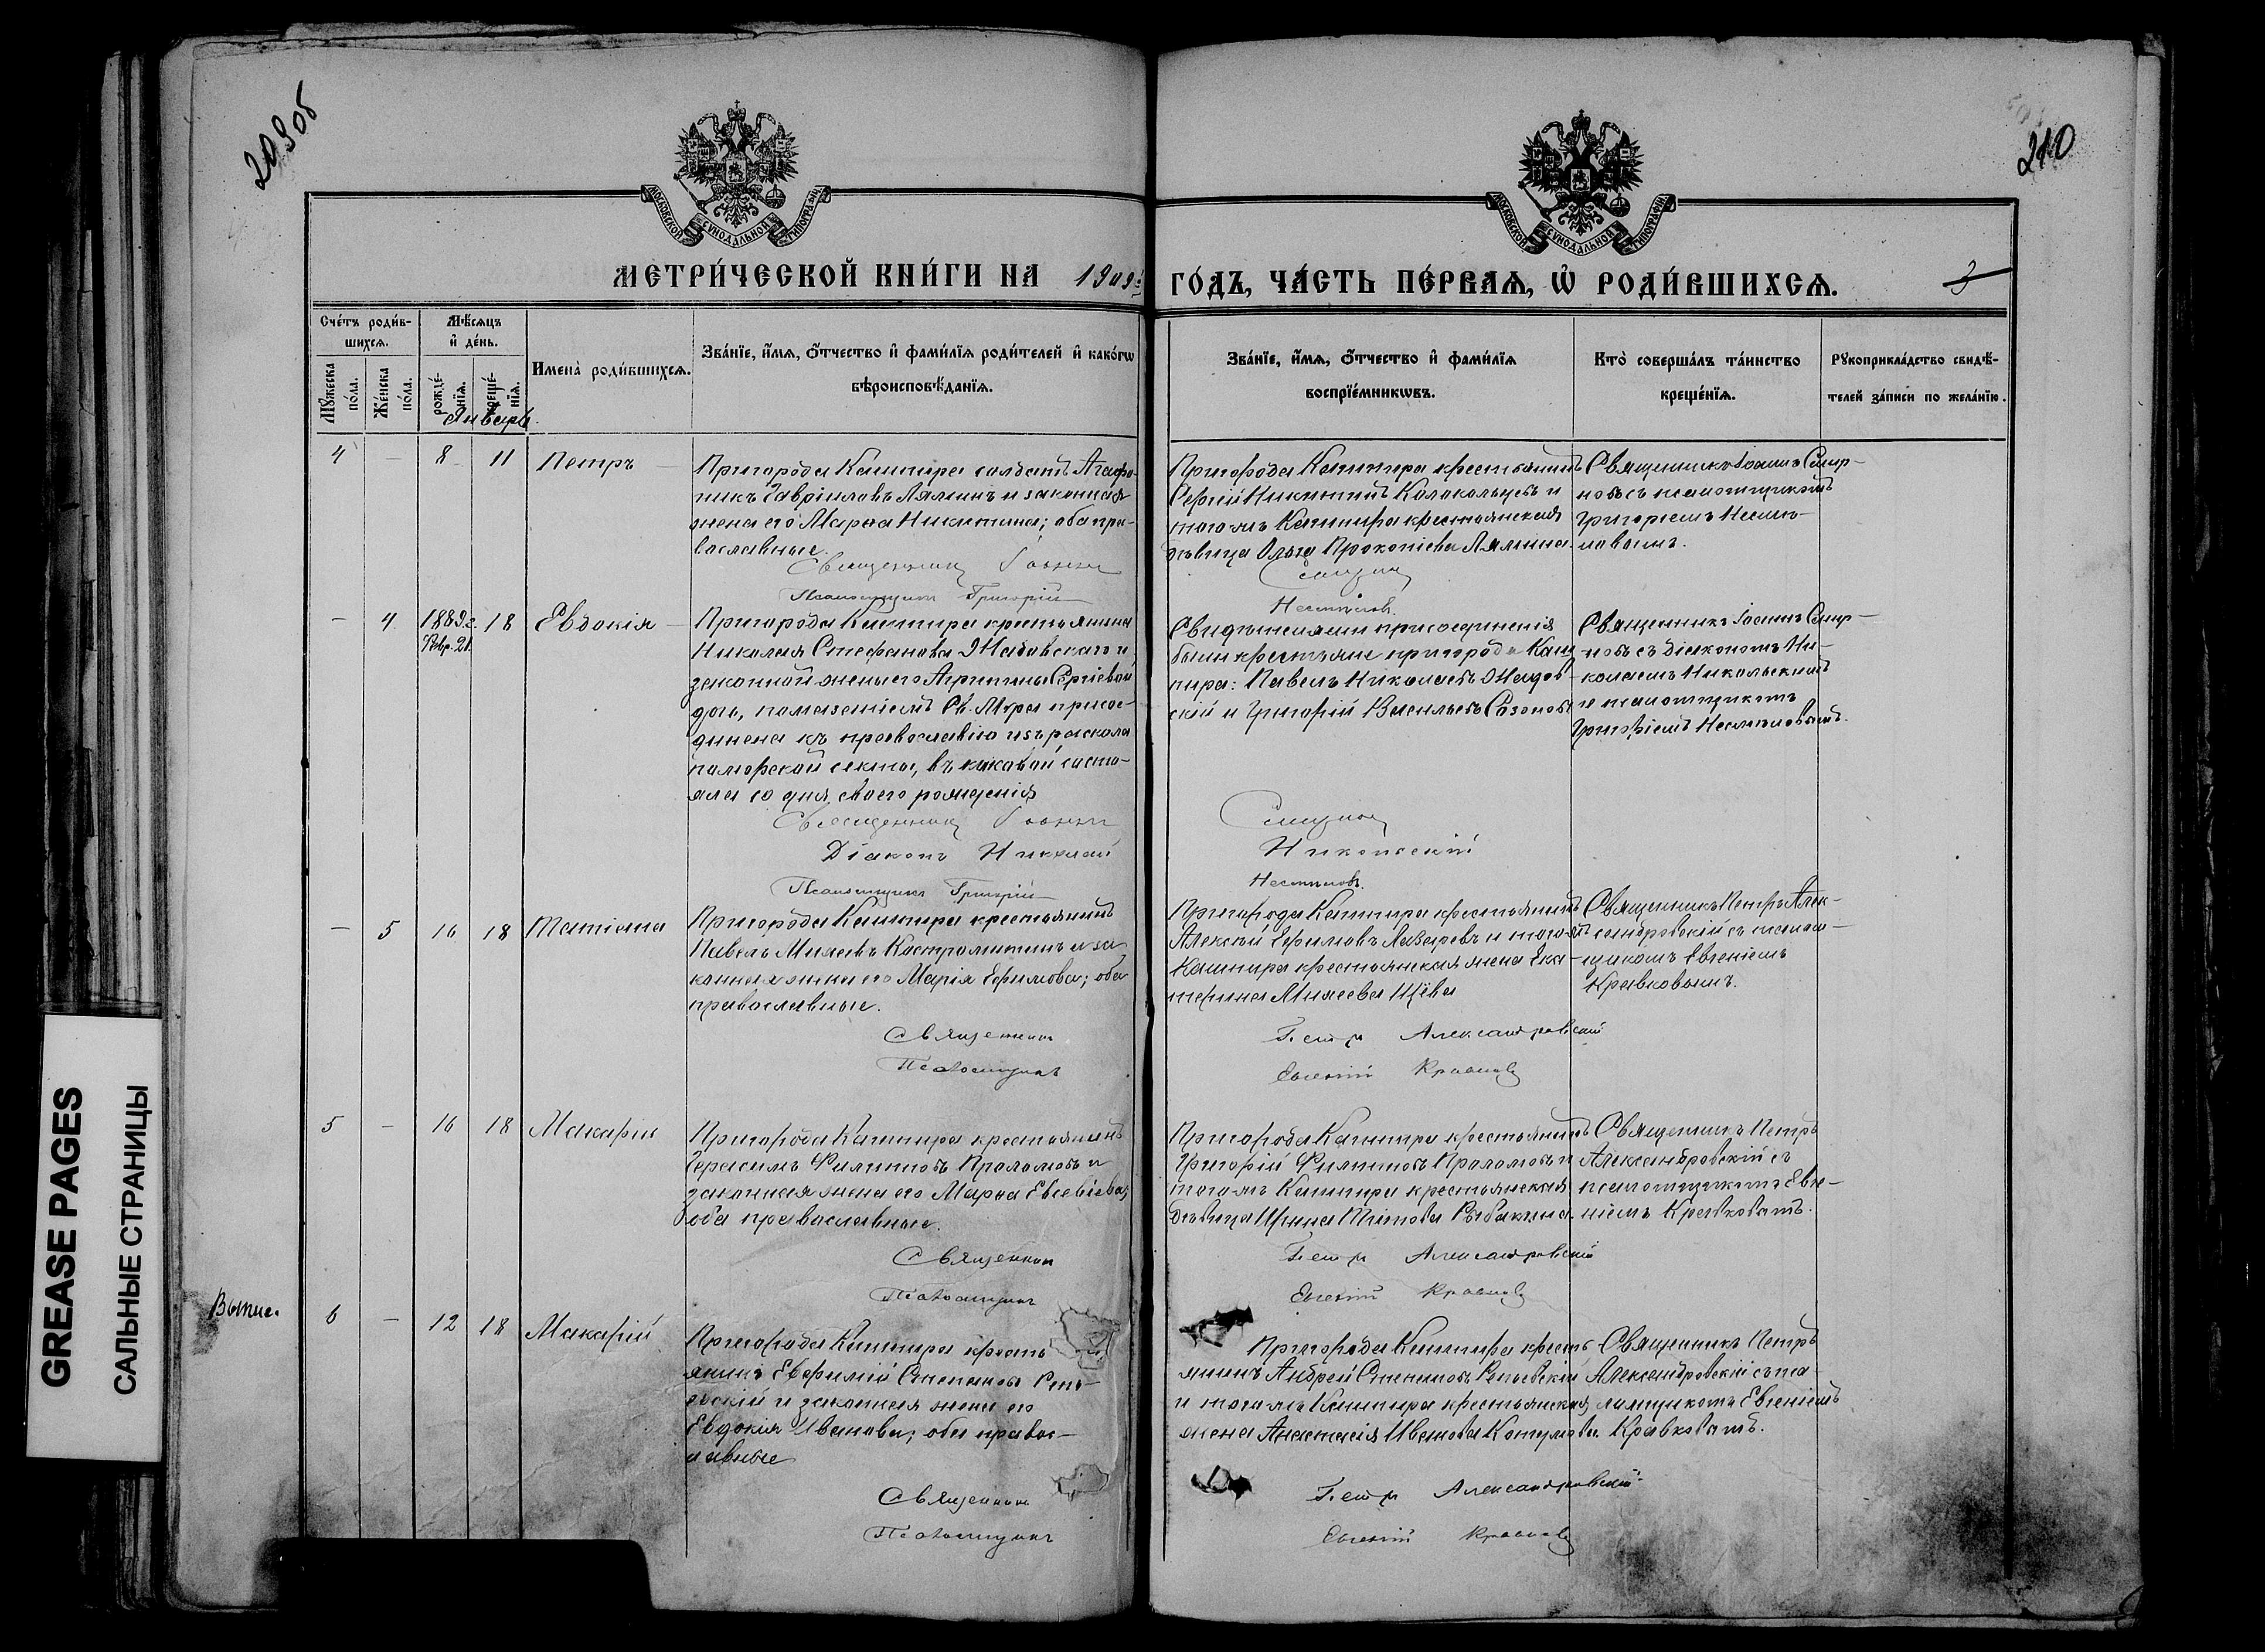 209об
210
МОСКОВСКОЙ СѴНОДАЛЬНОЙ ТИПОГРАФІИ
МОСКОВСКОЙ СѴНОДАЛЬНОЙ ТИПОГРАФІИ
МЕТРИ́ЧЕСКОЙ КНИ́ГИ НА 1909й
ГО́ДЪ, ЧА́СТЬ ПЕ́РВАѦ, Ѽ РОДИ́ВШИХСѦ.
3
Сче́тъ роди́в-
шихсѧ.
Мѣ́сѧцъ
и҆ де́нь.
Мꙋ́жеска
по́ла.
Же́нска
по́ла.
рожде́-
нїѧ.
креще́-
нїѧ.
Имена̀ роди́вшихсѧ.
Зва́нїе, и҆́мѧ, ѻ҆́тчество и҆ фами́лїѧ роди́телей и҆ како́гѡ
вѣроисповѣ́данїѧ.
Зва́нїе, и҆́мѧ, ѻ҆́тчество и҆ фами́лїѧ
воспрїе́мникѡвъ.
Кто̀ соверша́лъ та́инство
креще́нїѧ.
Рꙋкоприкла́дство свидѣ́-
телей за́писи по жела́нїю.
Январь.
4 — 8 11 Петръ
Пригорода Кашпира солдатъ Агафо-
никъ Гавріиловъ Лялинъ и законная
жена его Марѳа Никитина; оба пра-
вославные.
Священникъ Іоаннъ
Псаломщикъ Григорій
Пригорода Кашпира крестьянинъ
Сергій Никитинъ Колокольцевъ и
того жъ Кашпира крестьянская
дѣвица Ольга Прокопіева Лялина.
Смирнов
Несмѣловъ.
Священникъ Іоаннъ Смир-
новъ съ псаломщикомъ
Григоріемъ Несмѣ-
ловымъ.
— 4 1889 г. Февр. 21. 18 Евдокія
Пригорода Кашпира крестьянина
Николая Стефанова Жадовскаго и
законной жены его Агрипины Сергіевой
дочь, помазаніемъ Св. Мѵра присое-
динена къ православію изъ раскола
поморской секты, въ каковой состо-
яла со дня своего рожденія
Священникъ Іоаннъ
Діаконъ Николай
Псаломщикъ Григорій
Свидѣтелями присоединенія
были крестьяне пригорода Каш-
пира: Павелъ Николаевъ Жадов-
скій и Григорій Васильевъ Сазоновъ
Смирнов
Никольскій
Несмѣловъ.
Священникъ Іоаннъ Смир-
новъ съ діакономъ Ни-
колаемъ Никольскимъ
и псаломщикомъ
Григоріемъ Несмѣловымъ.
— 5 16 18 Татіана
Пригорода Кашпира крестьянинъ
Павелъ Минеевъ Костромитинъ и за-
конная жена его Марія Ефимова; оба
православные.
Священникъ
Псаломщикъ
Пригорода Кашпира крестьянинъ
Алексѣй Ефимовъ Лазаревъ и того жъ
Кашпира крестьянская жена Ека-
терина Минеева
Петръ Александровскій
Евгеній Кравковъ
Священникъ Петръ Алек-
сандровскій съ псалом-
щикомъ Евгеніемъ
Кравковымъ.
5 — 16 18 Макарій
Пригорода Кашпира крестьянинъ
Герасимъ Филиповъ Проломовъ и
законная жена его Марѳа Евсевіева;
оба православные.
Священникъ
Псаломщикъ
Пригорода Кашпира крестьянинъ
Григорій Филиповъ Проломовъ и
того жъ Кашпира крестьянская
дѣвица Ирина Титова Рыбакина.
Петръ Александровскій
Евгеній Кравковъ
Священникъ Петръ
Александровскій съ
псаломщикомъ Евге-
ніемъ Кравковымъ.
Выпис. 6 — 12 18 Макарій
Пригорода Кашпира кресть
янинъ Евфимій Степановъ Репь-
евскій и законная жена его
Евдокія Иванова; оба правос-
лавные
Священникъ
Псаломщикъ
Пригорода Кашпира кресть
янинъ Андрей Степановъ Репьевскій
и того жъ Кашпира крестьянская
жена Анастасія Иванова
Петръ Александровскій
Евгеній Кравковъ
Священникъ Петръ
Александровскій съ пса-
ломщикомъ Евгеніемъ
Кравковымъ.
GREASE PAGES
САЛЬНЫЕ СТРАНИЦЫ